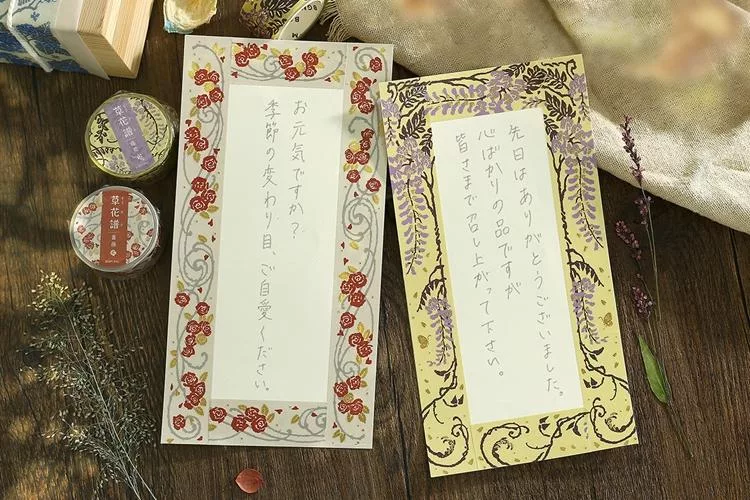 お元気ですか？
季節の変わり目、ご自愛ください。
先日はありがとうございました。
心ばかりの品ですが
皆さまで召し上がって下さい。
草花譜
草花譜